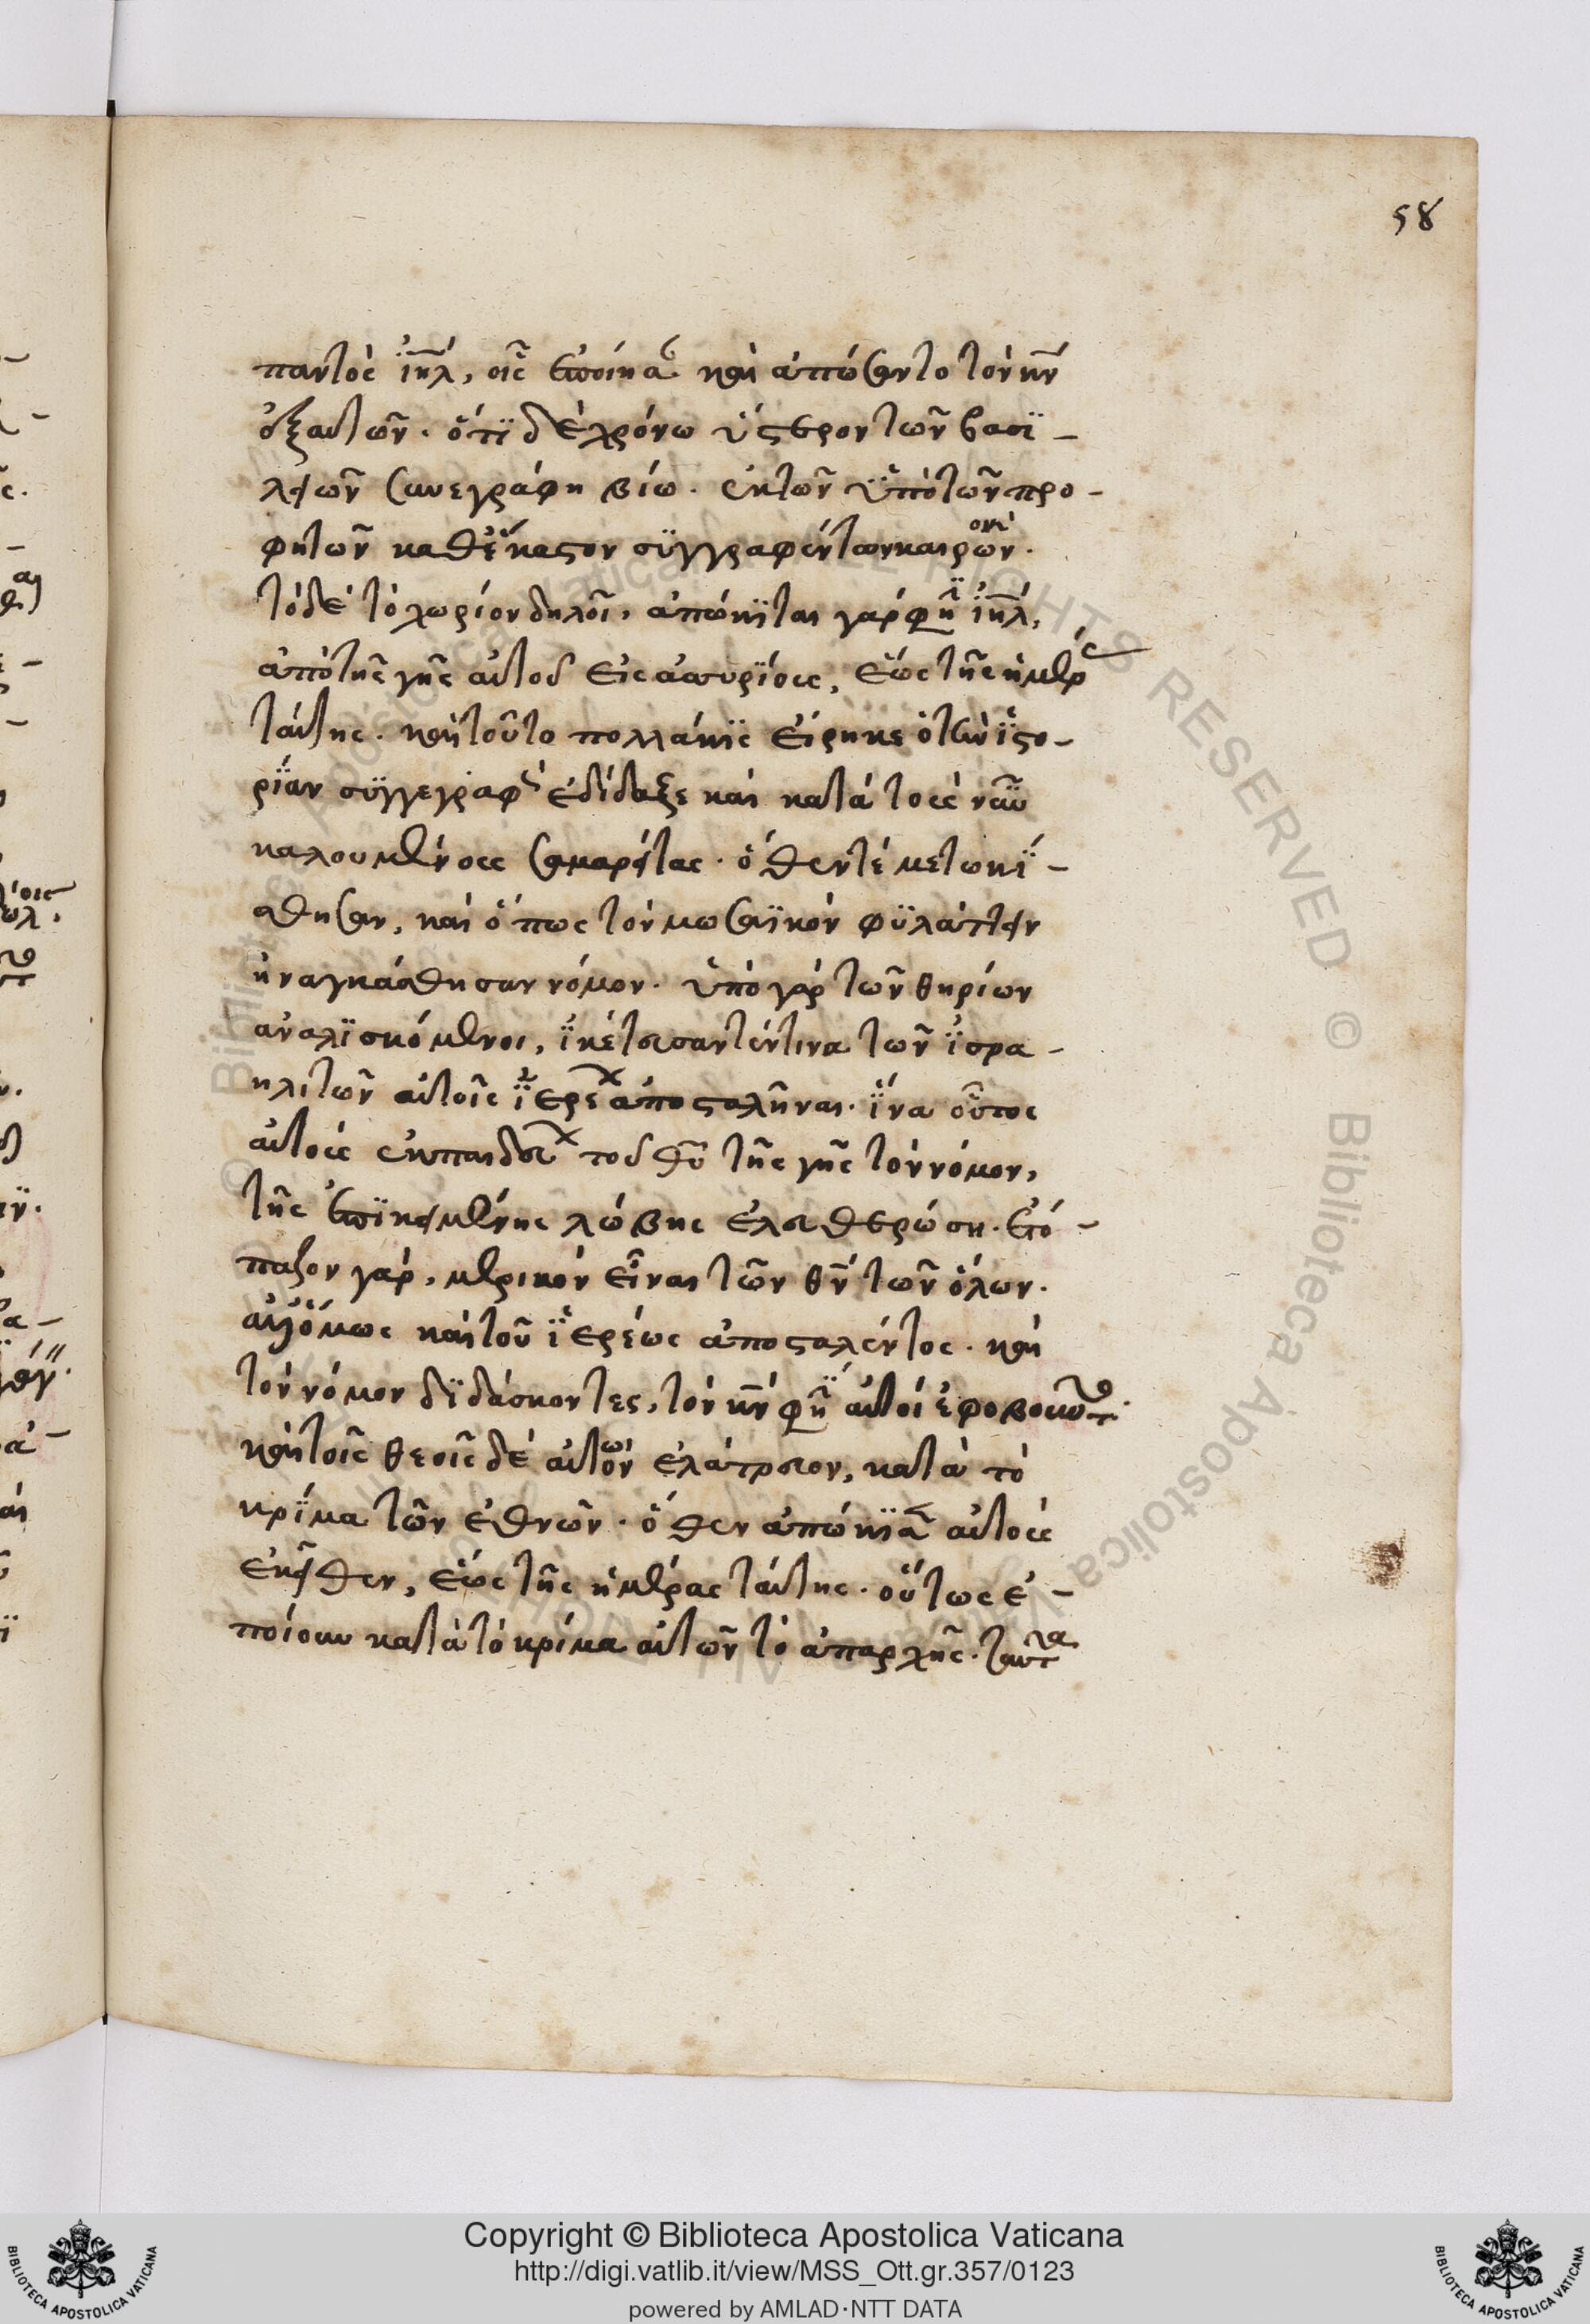 58
παντὸς ἰηλ, οἷς ἐποίησαν καὶ ἀπώσαντο τὸν κν
ἐξ αὐτῶν. ὅτι δὲ χρόνω ὕστερον τῶν βασι-
λειῶν συνεγράφη βίω. ἐκ τῶν ὑπὸ τῶν προ-
φητῶν καθ' ἕκαστον συγγραφέντων καιρῶν.
τόδε τὸ χωρίον δηλοῖ, ἀπώκισται γάρ φη ἰηλ,
ἀπὸ τῆς γῆς αὐτοῦ εἰς ἀσσυρίους, ἕως τῆς ἡμέρας
ταύτης. καὶ τοῦτο πολλάκις εἴρηκε ὁ τὴν ἱστο-
ρίαν συγγεγραφὼς ἐδίδαξε καὶ κατὰ τοὺς νῦν
καλουμένους σαμαρείτας. ὅθεν τέ μετωκί-
σθησαν, καὶ ὅπως τὸν μωσαϊκὸν φυλάττειν
ἠναγκάσθησαν νόμον. ὑπὸ γὰρ τῶν θηρίων
ἀναλισκόμενοι, ἱκέτευσαν τέν τινα τῶν ἰσρα-
ηλιτῶν αὐτοῖς ἱερέα ἀποσταλῆναι. ἵνα οὗτος
αὐτοὺς ἐκπαιδεύσας τοῦ θυ τῆς γῆς τὸν νόμον,
τῆς ἐπικειμένης λώβης ἐλευθερώση. ἐτό-
παζον γάρ, μερικὸν εἶναι τῶν θν τῶν ὅλων.
ἀλλ' ὅμως καὶ τοῦ ἱερέως ἀποσταλέντος. καὶ
τὸν νόμον διδάσκοντες, τὸν κν φη αὐτοὶ ἐφοβοῦντο.
καὶ τοῖς θεοῖς δὲ αὐτῶν ἐλάτρευον, κατὰ τὸ
κρίμα τῶν ἐθνῶν. ὅθεν ἀπώκισαν αὐτοὺς
ἐκεῖθεν, ἕως τῆς ἡμέρας ταύτης. οὕτως ἐ-
ποίουν κατὰ τὸ κρίμα αὐτῶν τὸ ἀπαρχῆς. ταῦτα
Copyright © Biblioteca Apostolica Vaticana
http://digi.vatlib.it/view/MSS_Ott.gr.357/0123
powered by AMLAD·NTT DATA